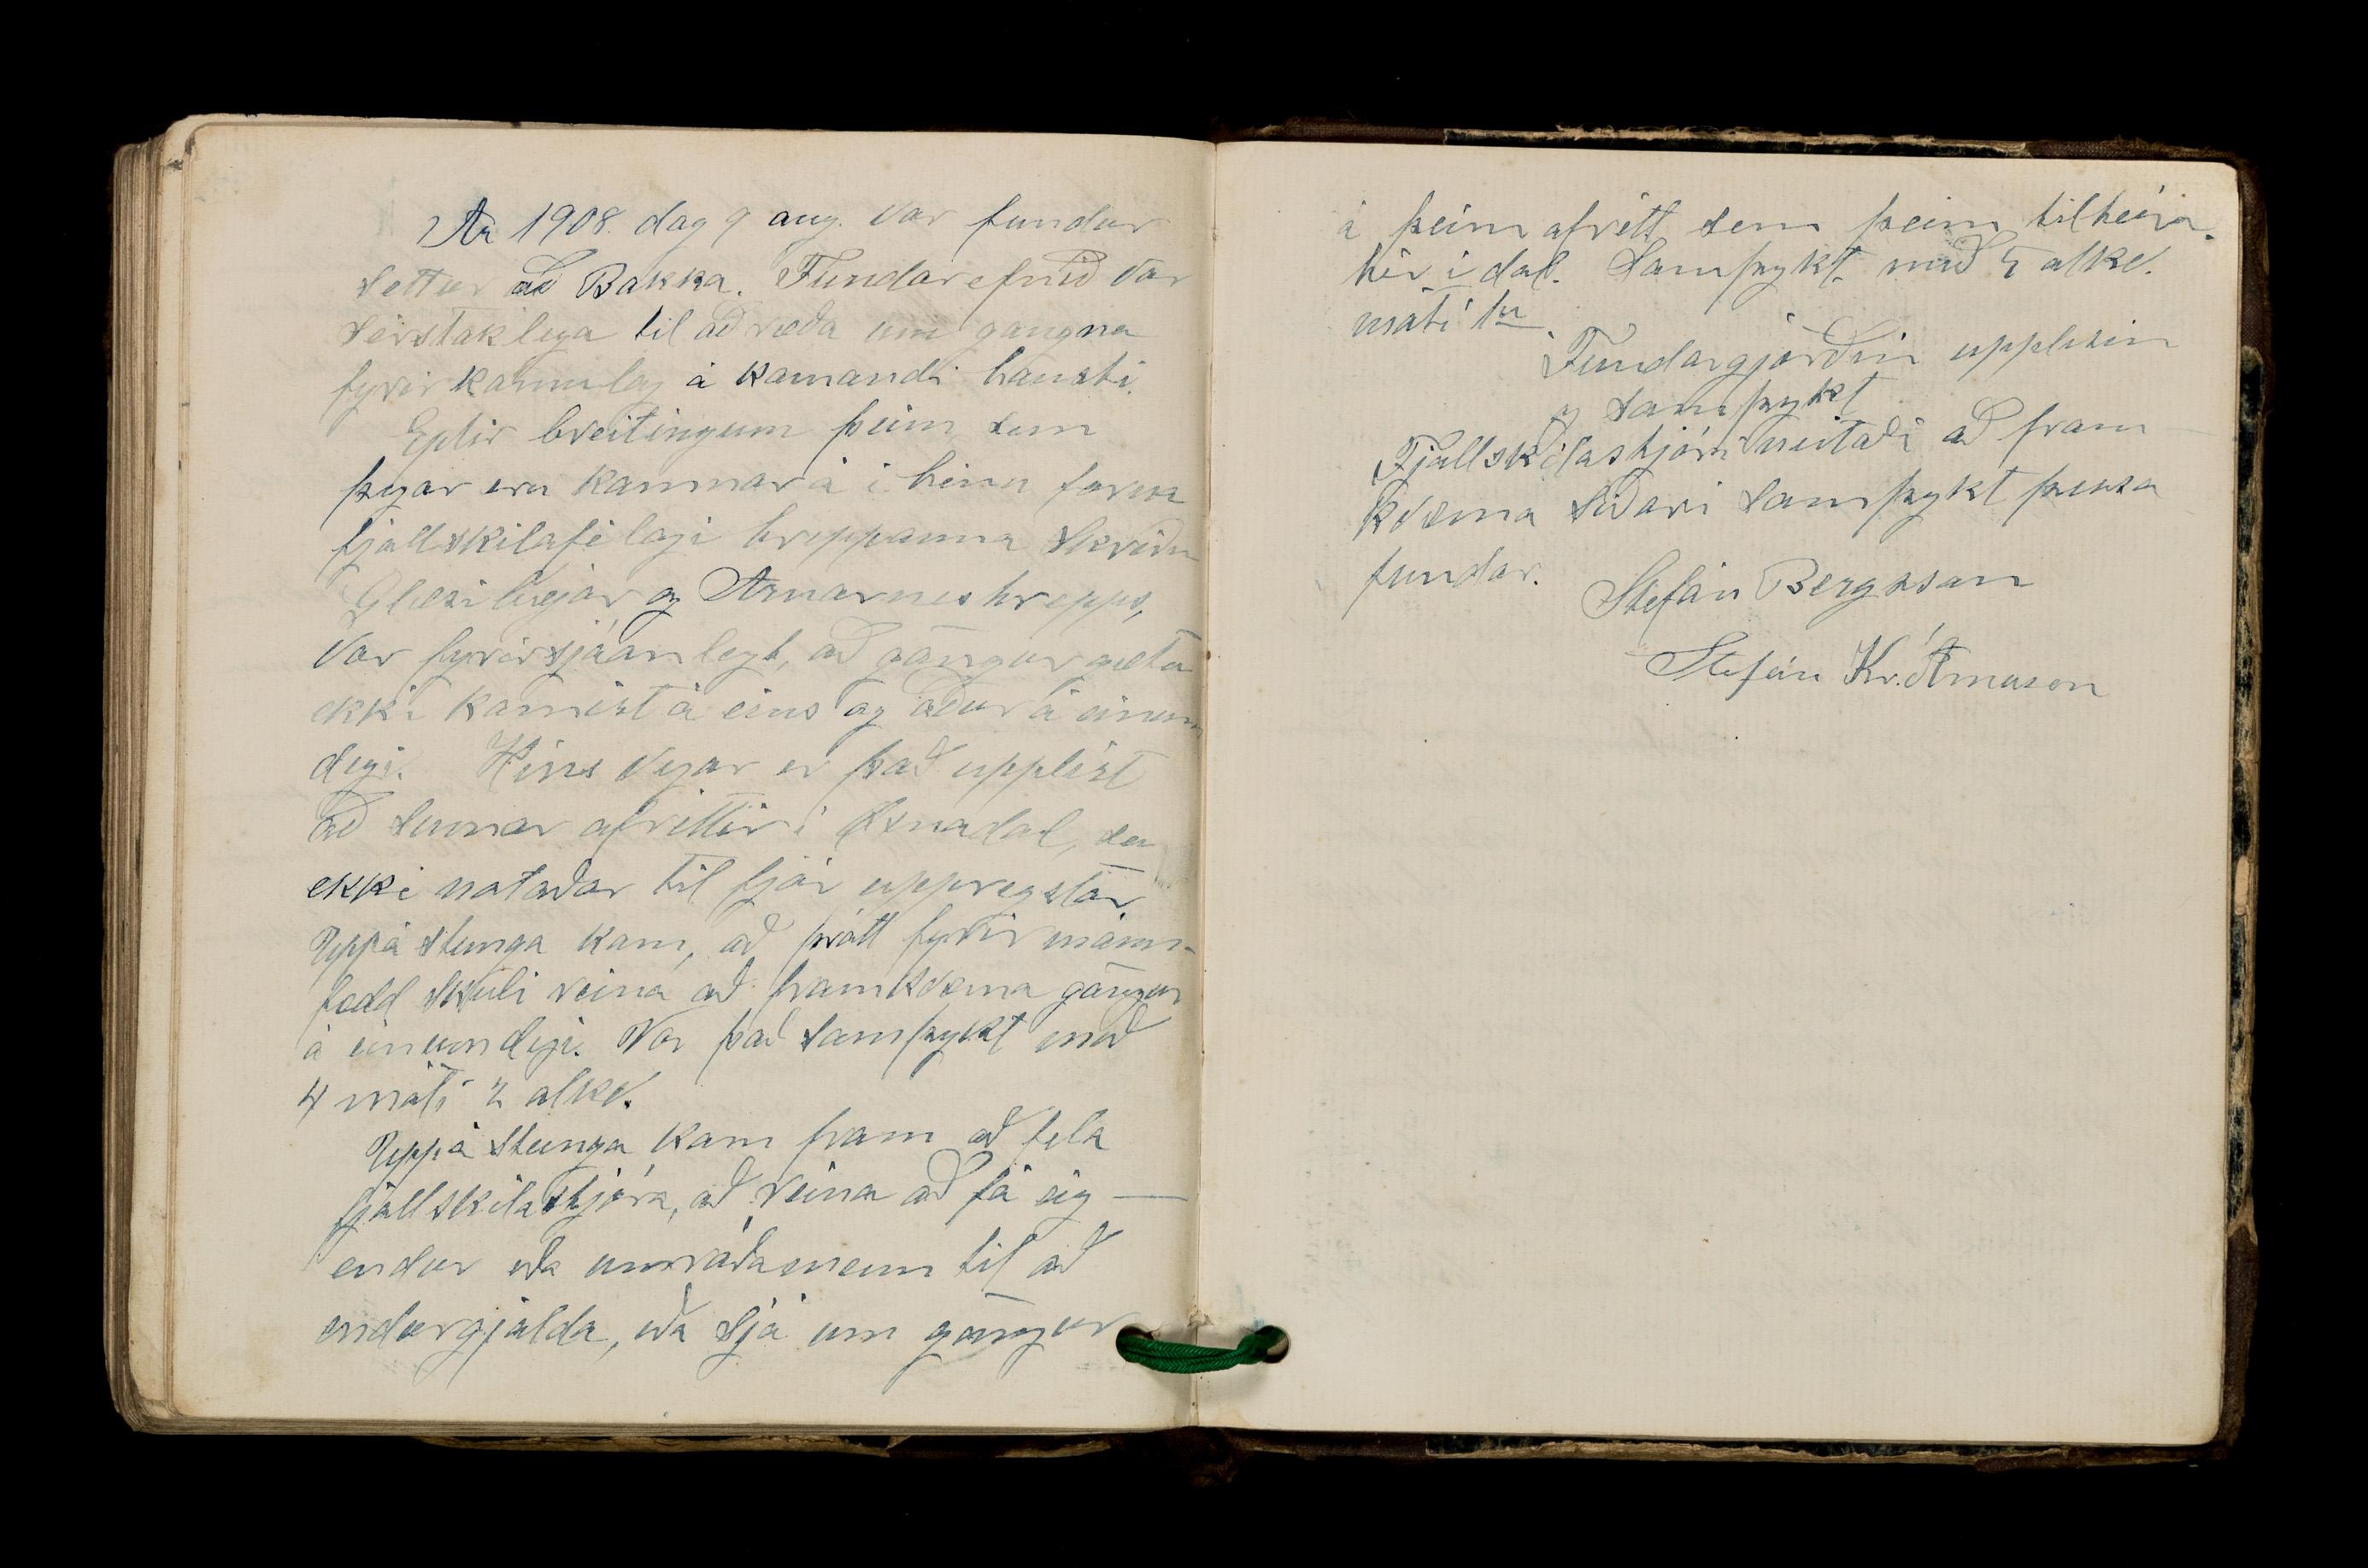 Ár 1908. dag 9 aug. var fundur
settur að Bakka. Fundarefnið var
sérstaklega til að ræða um gangna
fyrirkomulag á komandi hausti.
Eptir breitingum þeim sem
þegar eru komnar á í hinu forna
fjallskilafélagi hreppanna Skriðu
Glæsibæjar og Arnarneshrepps,
var fyrirsjáanlegt, að gángur gætu
ekki komist á eins og áður á einum
degi. Hins vegar er það upplíst
að sumar afréttir í Öxnadal, eru
ekki notaðar til fjár upprekstar.
Uppá stunga kom, að þrátt fyrir mann-
fædd skuli reina að framkvæma gángur
á einum degi. Var það samþykt með
4 móti 2 atkv.
Uppá stunga kom fram að fela
fjallskilastjóra, að reina að fá eig-
endur eða umráðamenn til að
endurgjalda, eða sjá um gángur
á þeim afrétt sem þeim tilheira
hér í dal. Samþykt með 5 atkv.
móti 1u.
Fundargjörðin upplesin
og samþykt
Fjallskilastjóri neitaði að fram-
kvæma síðari samþykt þessa
fundar.
Stefán Bergsson
Stefán Kr. Árnason